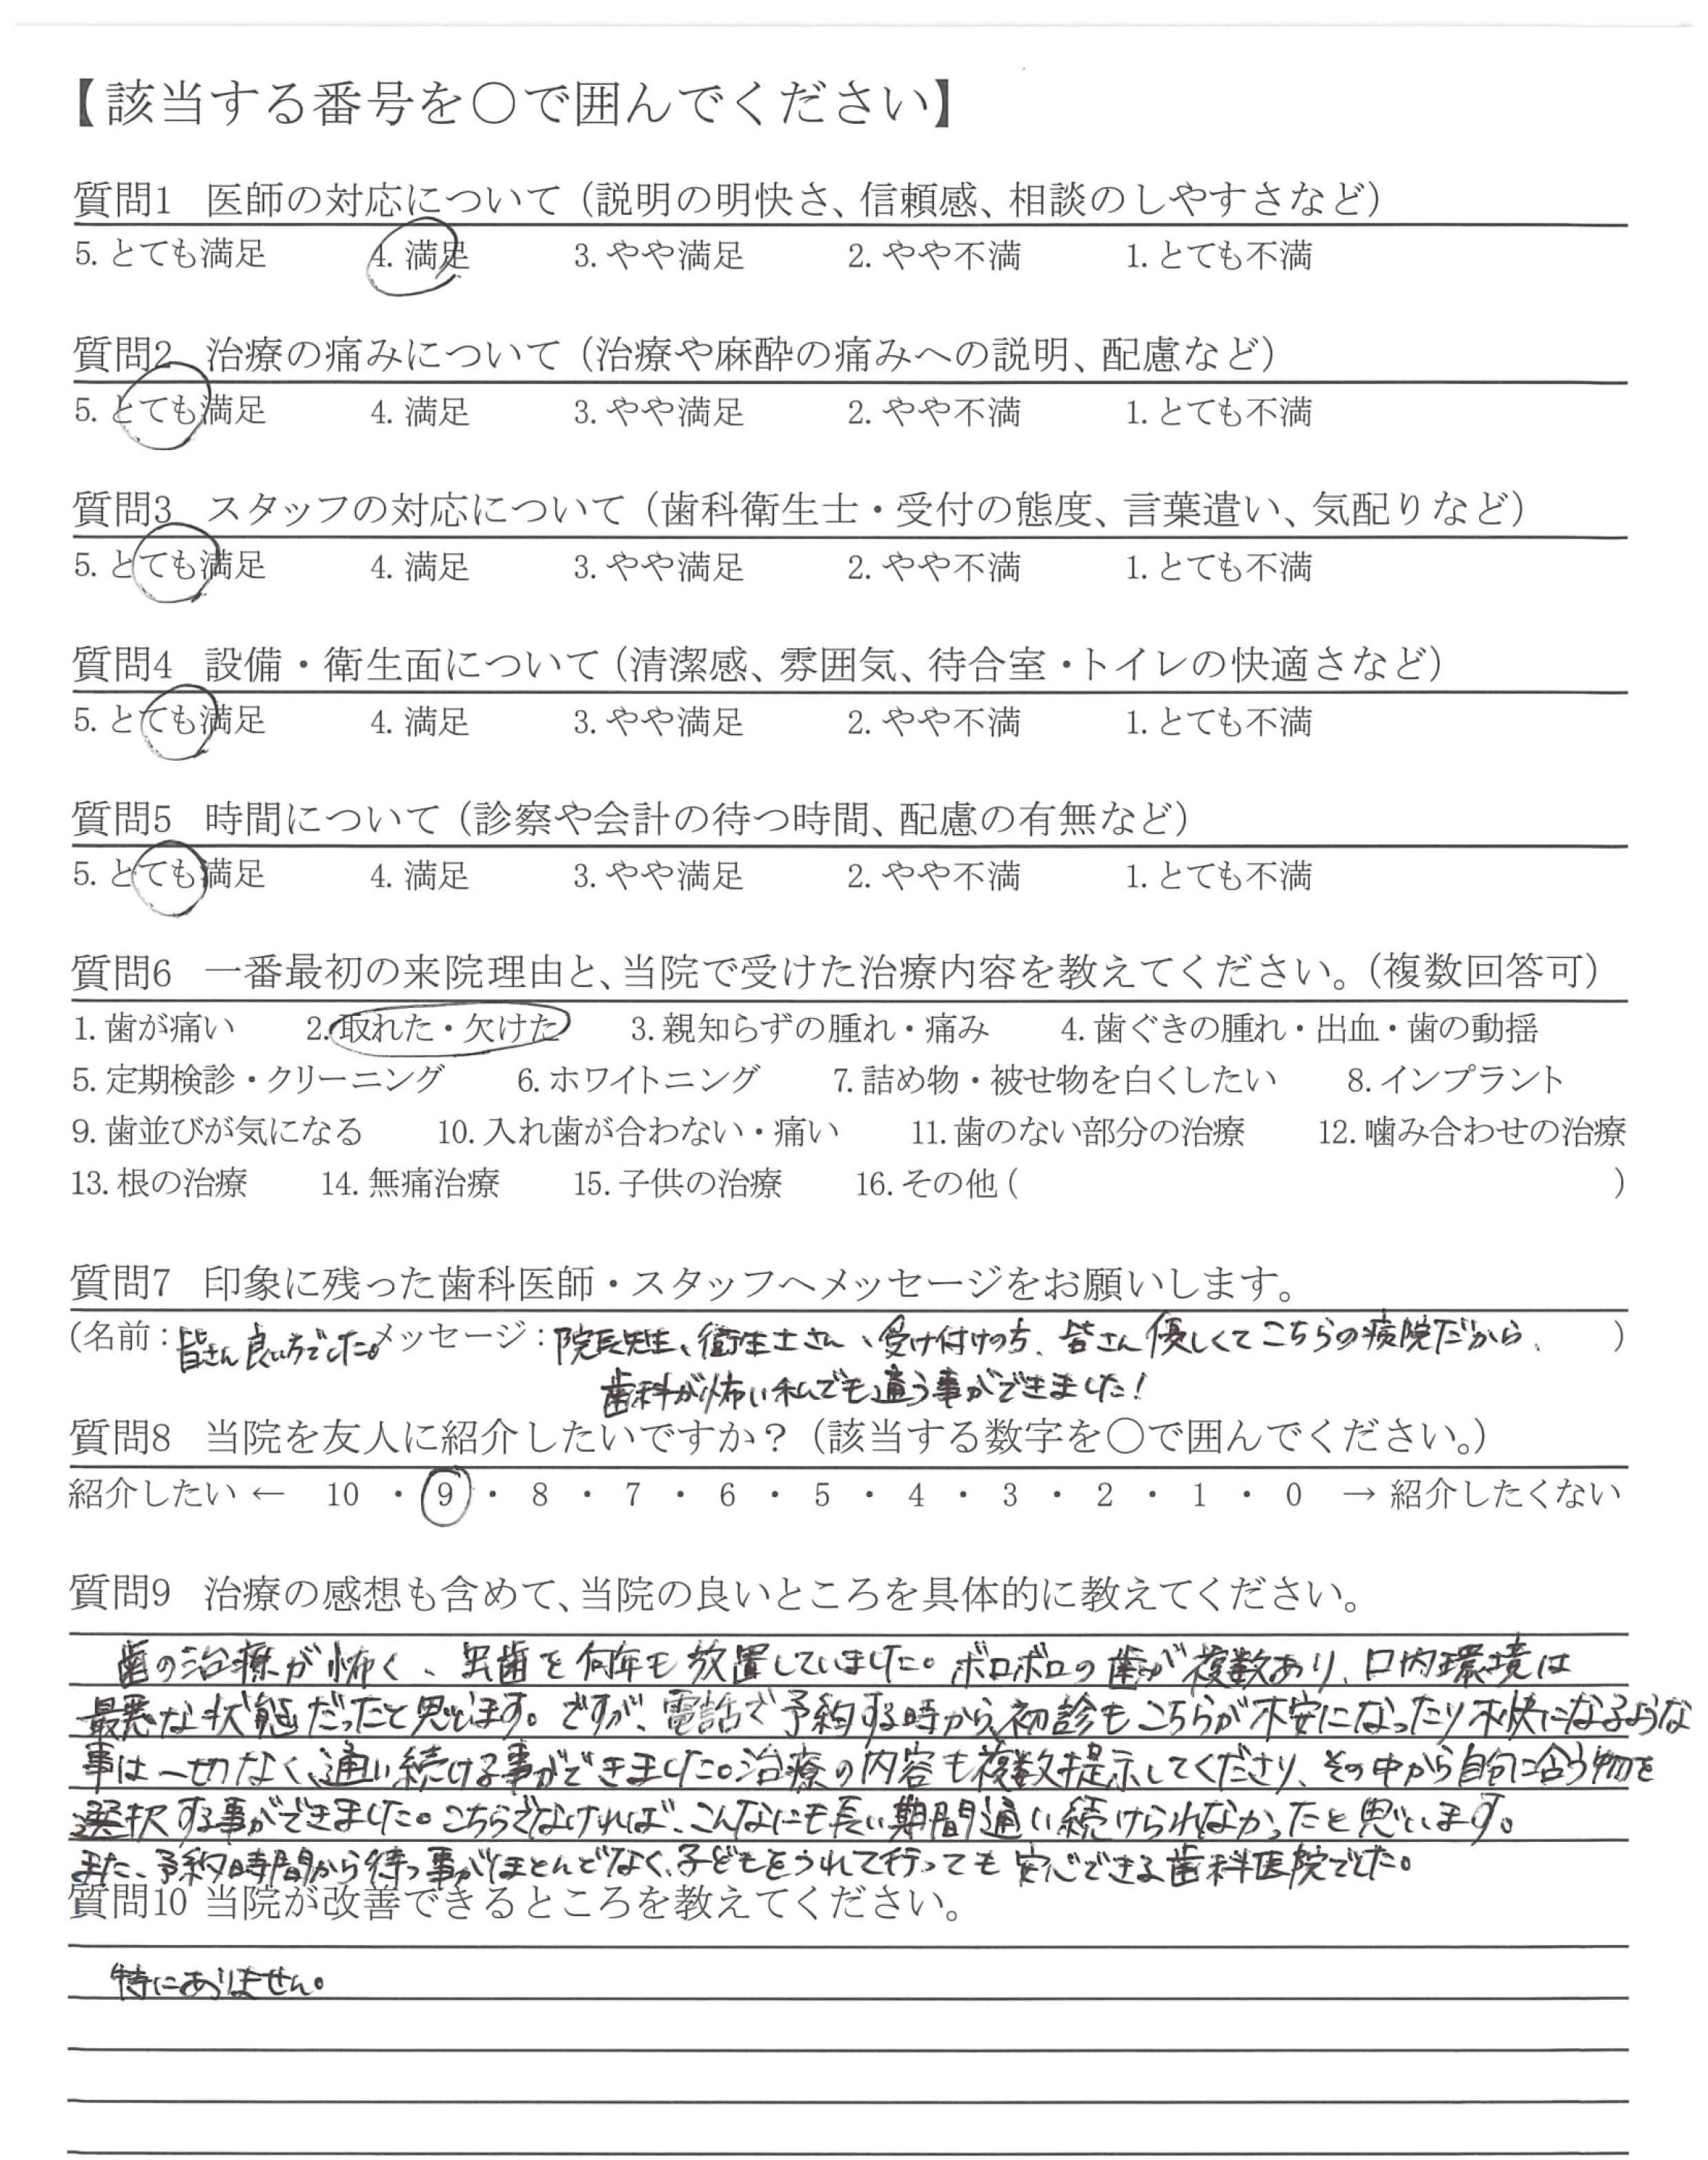 【該当する番号を〇で囲んでください】
質問1 医師の対応について（説明の明快さ、信頼感、相談のしやすさなど）
5. とても満足 4. 満足 3. やや満足 2. やや不満 1. とても不満
質問2 治療の痛みについて（治療や麻酔の痛みへの説明、配慮など）
5. とても満足 4. 満足 3. やや満足 2. やや不満 1. とても不満
質問3 スタッフの対応について（歯科衛生士・受付の態度、言葉遣い、気配りなど）
5. とても満足 4. 満足 3. やや満足 2. やや不満 1. とても不満
質問4 設備・衛生面について（清潔感、雰囲気、待合室・トイレの快適さなど）
5. とても満足 4. 満足 3. やや満足 2. やや不満 1. とても不満
質問5 時間について（診察や会計の待つ時間、配慮の有無など）
5. とても満足 4. 満足 3. やや満足 2. やや不満 1. とても不満
質問6 一番最初の来院理由と、当院で受けた治療内容を教えてください。（複数回答可）
1. 歯が痛い 2. 取れた・欠けた 3. 親知らずの腫れ・痛み 4. 歯ぐきの腫れ・出血・歯の動揺
5. 定期検診・クリーニング 6. ホワイトニング 7. 詰め物・被せ物を白くしたい 8. インプラント
9. 歯並びが気になる 10. 入れ歯が合わない・痛い 11. 歯のない部分の治療 12. 噛み合わせの治療
13. 根の治療 14. 無痛治療 15. 子供の治療 16. その他（ ）
質問7 印象に残った歯科医師・スタッフへメッセージをお願いします。
（名前：皆さん良い方でした。メッセージ：院長先生、衛生士さん、受け付けの方、皆さん優しくてこちらの病院だから、）
歯科が怖い私でも通う事ができました！
質問8 当院を友人に紹介したいですか？（該当する数字を〇で囲んでください。）
紹介したい ← 10 ・ 9 ・ 8 ・ 7 ・ 6 ・ 5 ・ 4 ・ 3 ・ 2 ・ 1 ・ 0 → 紹介したくない
質問9 治療の感想も含めて、当院の良いところを具体的に教えてください。
歯の治療が怖く、虫歯を何年も放置していました。ボロボロの歯が複数あり、口内環境は
最悪な状態だったと思います。ですが、電話で予約する時から、初診もこちらが不安になったり不快になるような
事は一切なく、通い続ける事ができました。治療の内容も複数提示してくださり、その中から自分に合う物を
選択する事ができました。こちらでなければ、こんなにも長い期間通い続けられなかったと思います。
また、予約時間から待つ事がほとんどなく、子どもをつれて行っても安心できる歯科医院でした。
質問10 当院が改善できるところを教えてください。
特にありません。